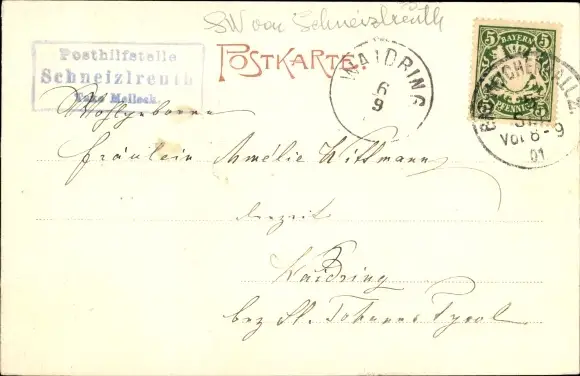 SW von Schneizlreuth
Posthilfstelle
Schneizlreuth
Taxe Melleck.
POSTKARTE.
WAIDRING
6
9
5 BAYERN 5
5 PFENNIG 5
BAD REICHENHALL
5
Vor 8-9
01
Wohlgeboren
Fräulein Amélie Wittmann
derzeit
Waidring
bez St. Johann Tyrol